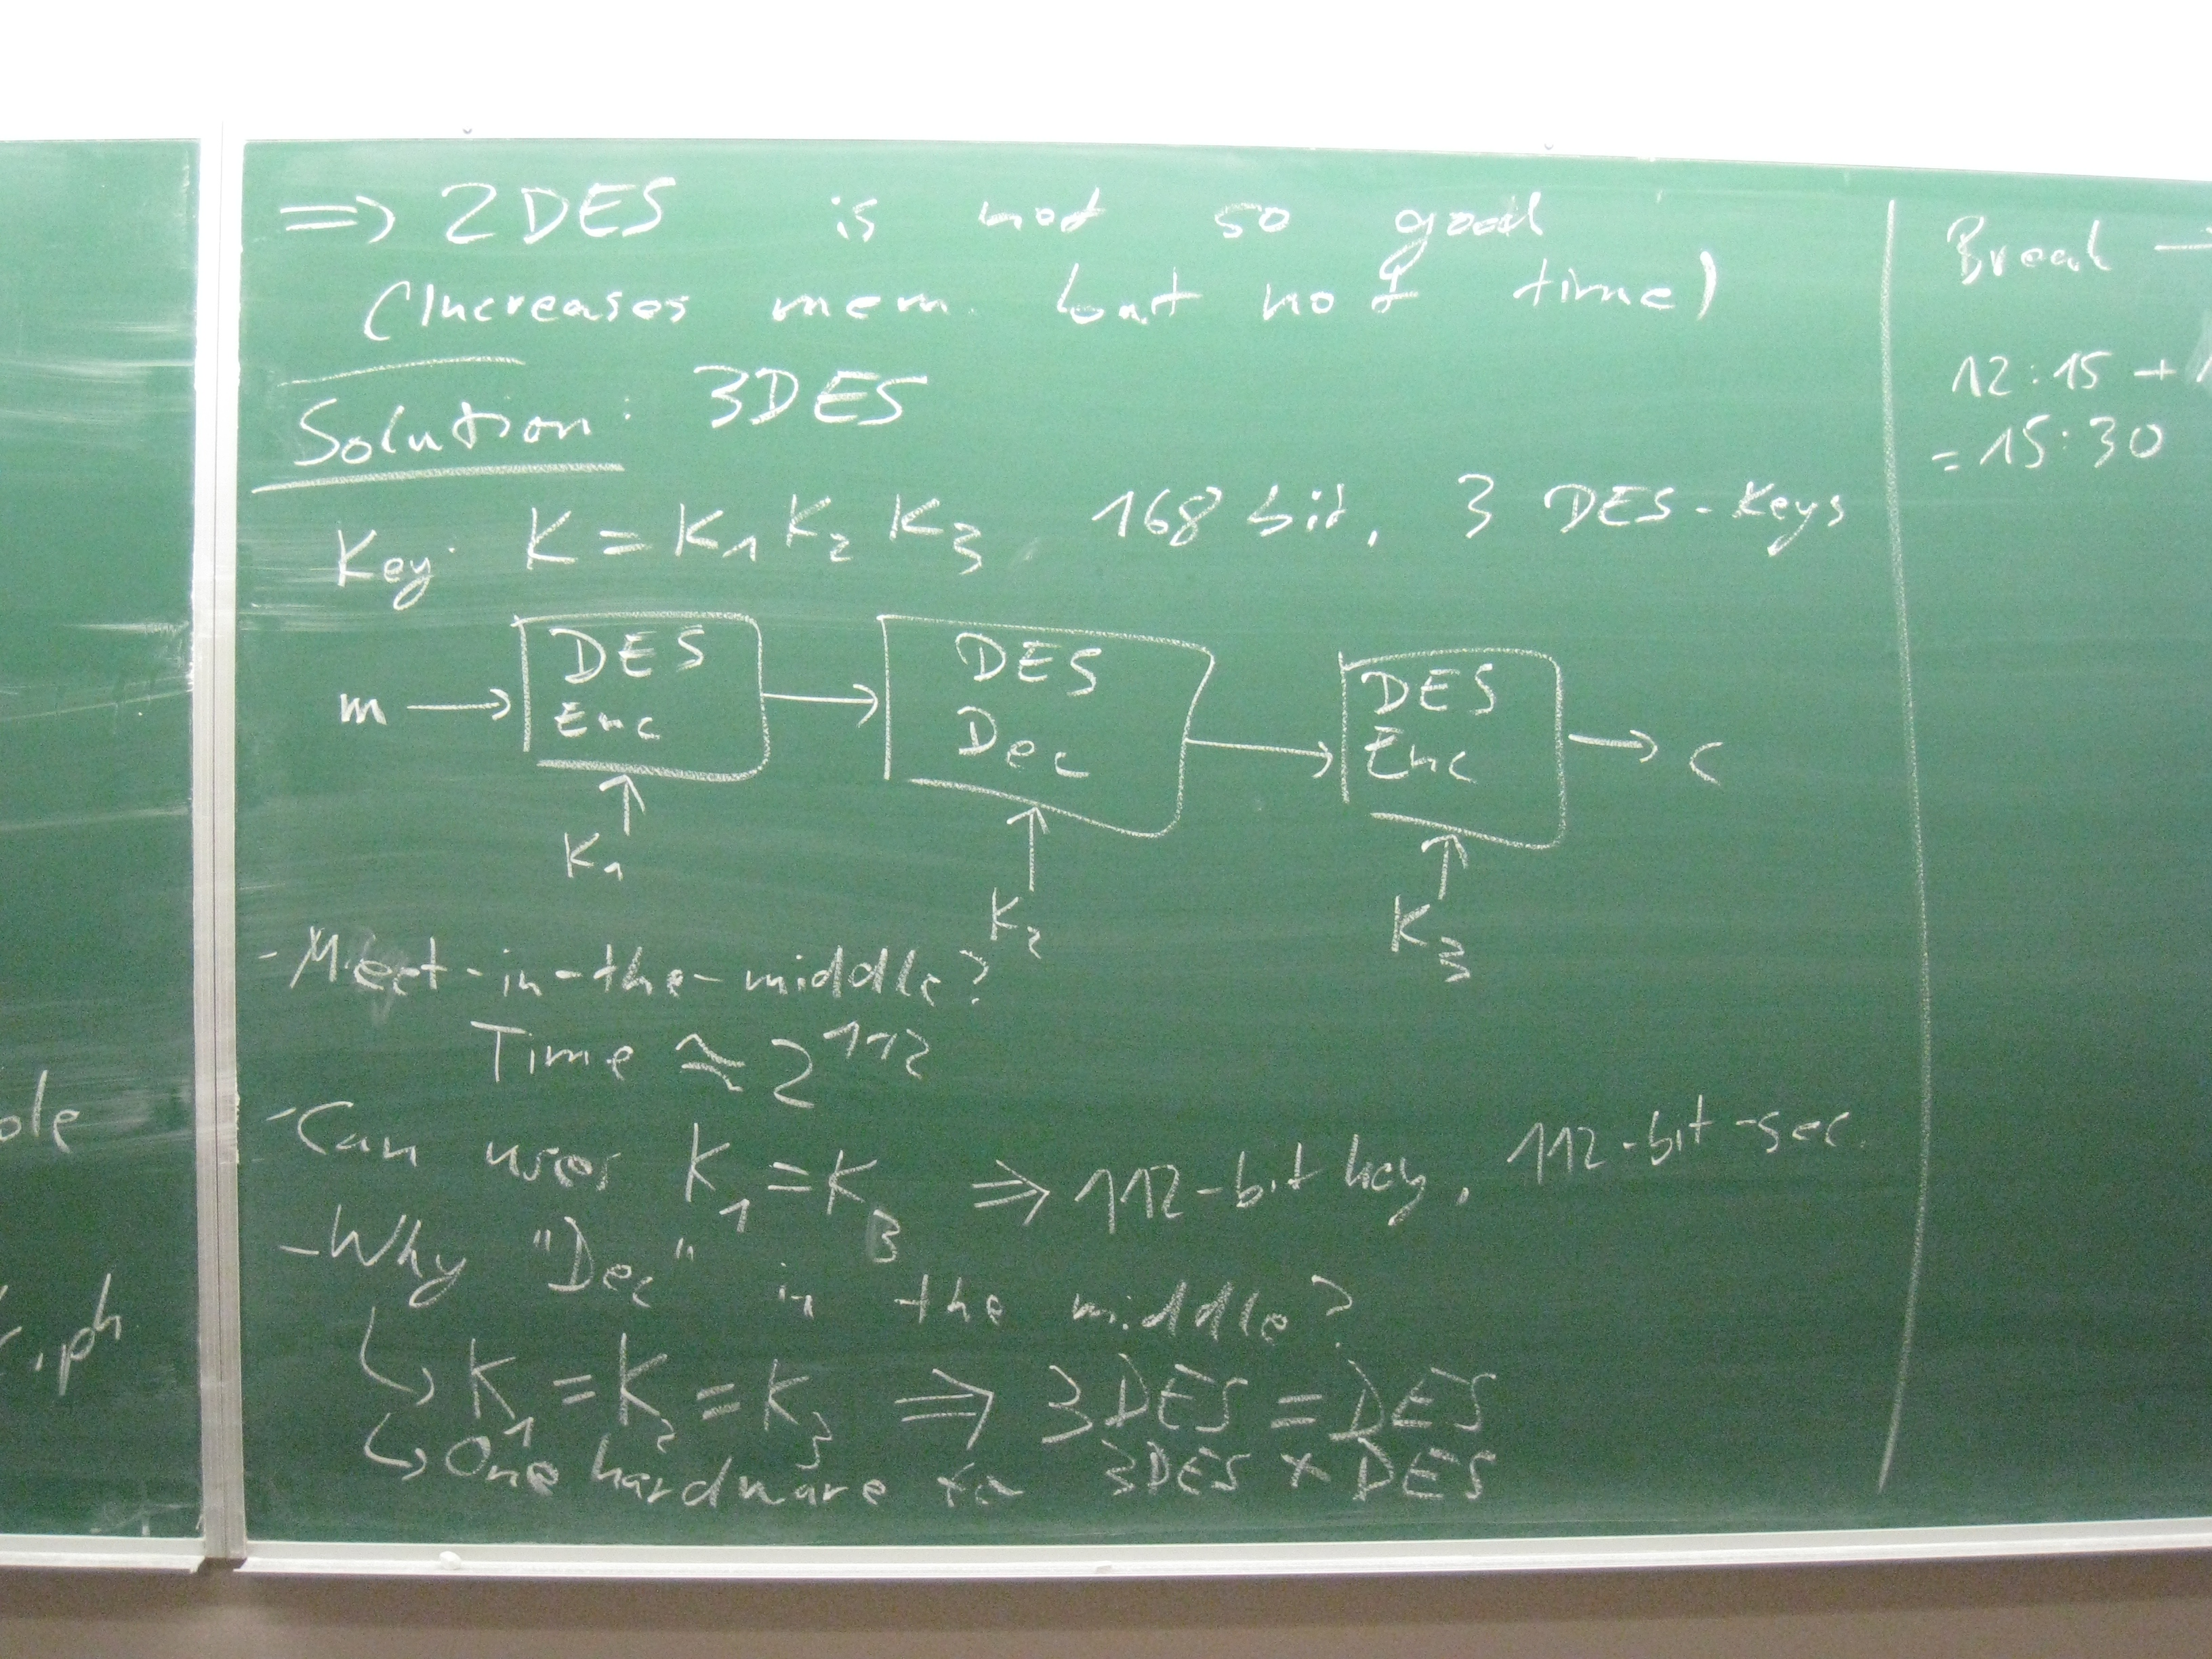 => 2DES is not so good
(Increases mem. but not time)
Solution: 3DES
Key: K = K₁ K₂ K₃ 168 bit, 3 DES-Keys
m → DES Enc → DES Dec → DES Enc → c
K₁
K₂
K₃
- Meet-in-the-middle?
Time ≈ 2¹¹²
- Can uses K₁ = K₃ => 112-bit key, 112-bit-sec.
- Why "Dec" in the middle?
↳ K₁ = K₂ = K₃ => 3DES = DES
↳ One hardware 3DES + DES
Break →
12:15 +
= 15:30
ole
ph